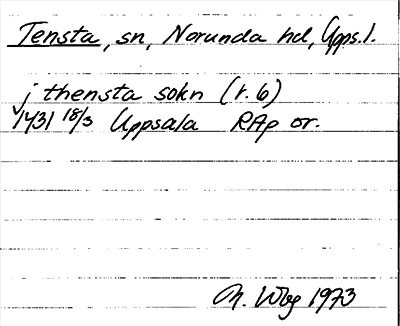 Tensta, sn, Norunda hd, Upps.l.
j thensta sokn (r. 6)
1431 18/3 Uppsala RAp or.
M. Wbg 1973